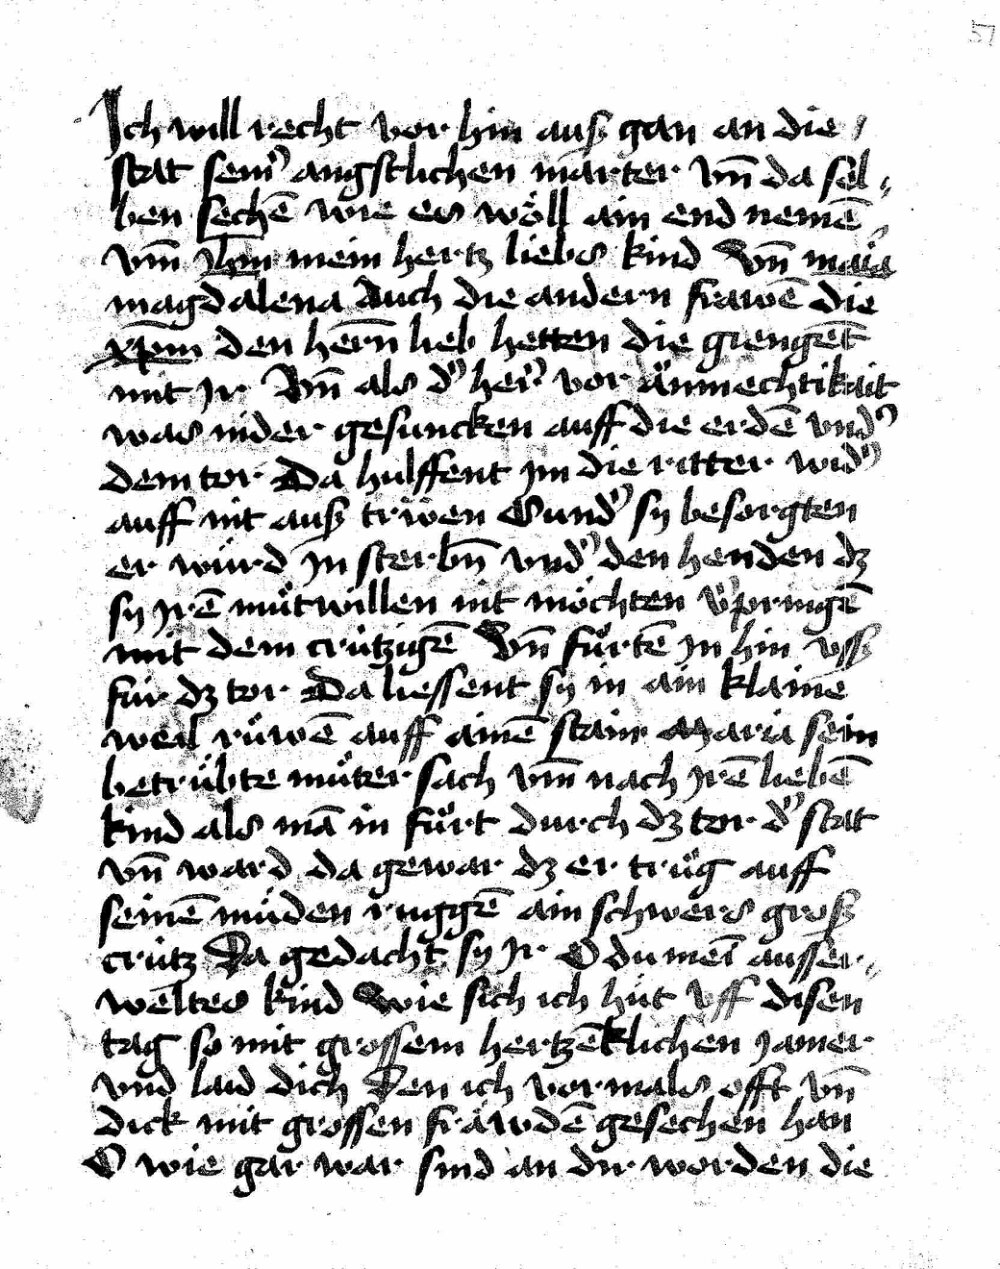 57
Ich will recht vor hin auß gan an die
stat seinr̾ angstlichen marter vn̄ da sel„
ben sechē wie es wöll ain end nemē
vm̄ Jhm̄ mein hertz liebs kind Vn̄ maia
magdalena Auch die andern frawē die
xp̄m den hern̄ lieb hetten die giengēt
mit Jr Vn̄ als d̾ her̾ vor ӓnmechtikait
was nider gesuncken auff die erdē vnd̾
dem tor Da hulffent im die ritter wid̾
auff nit auß trẅen Sund̾ sy besorgten
er wurd Jn sterbn̄ vnd̾ den henden dz
sy Jrē mu̇twillen nit möchten v̾pringē
mit dem crützigē Vn̄ fůrtē Jn hin vss
für dz tor Da liessent sy in ain klaine
weil růwē auff ainē stain Maria sein
betrübte můter sach vm̄ nach Jrē liebē
kind als mā in fůrt durch dz tor d̾ stat
vn̄ ward da gewar dz er trůg auff
seinē müden ruggē ain schwers groß
crütz Da gedacht sy Jr O du mei̅ ausser„
weltes kind Wie sich ich hüt vff disen
tag so mit grossem hertzēklichen Jamer
vnd laid dich Den ich vormals offt vn̄
dick mit grossen frӓwdē gesechen han
O wie gar war sind an dir worden die